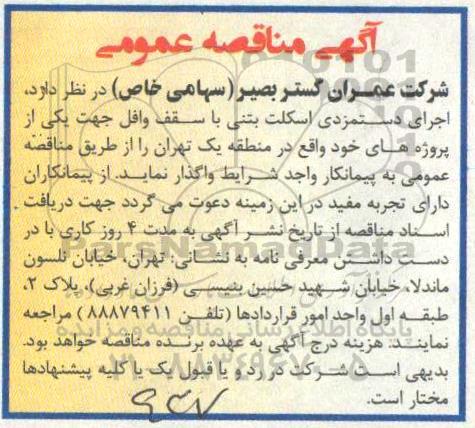 آگهی مناقصه عمومی
شرکت عمران گستر بصیر (سهامی خاص) در نظر دارد،
اجرای دستمزدی اسکلت بتنی با سقف وافل جهت یکی از
پروژه های خود واقع در منطقه یک تهران را از طریق مناقصه
عمومی به پیمانکار واجد شرایط واگذار نماید. از پیمانکاران
دارای تجربه مفید در این زمینه دعوت می گردد جهت دریافت
اسناد مناقصه از تاریخ نشر آگهی به مدت ۴ روز کاری با در
دست داشتن معرفی نامه به نشانی: تهران، خیابان نلسون
ماندلا، خیابان شهید حسین بنیسی (فرزان غربی)، پلاک ۲،
طبقه اول واحد امور قراردادها (تلفن ۸۸۸۷۹۴۱۱) مراجعه
نمایند. هزینه درج آگهی به عهده برنده مناقصه خواهد بود.
بدیهی است شرکت در رد و یا قبول یک یا کلیه پیشنهادها
مختار است.
ParsNamadData
پایگاه اطلاع رسانی مناقصه و مزایده
۰۲۱-۸۸۳۴۹۶۷۰-۵